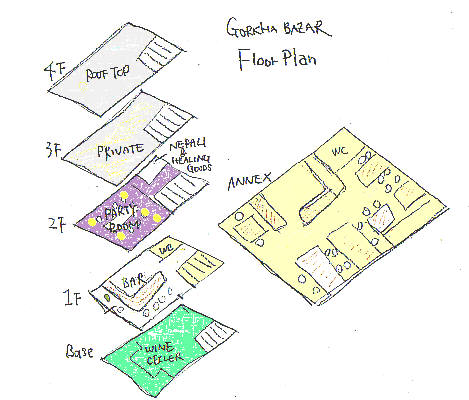 GORKHA BAZAR
Floor Plan
4F
ROOF TOP
3F
PRIVATE
NEPALI
&
HEALING
GOODS
2F
PARTY
ROOM
ANNEX
WC
1F
BAR
WC
Base
WINE
CELLER